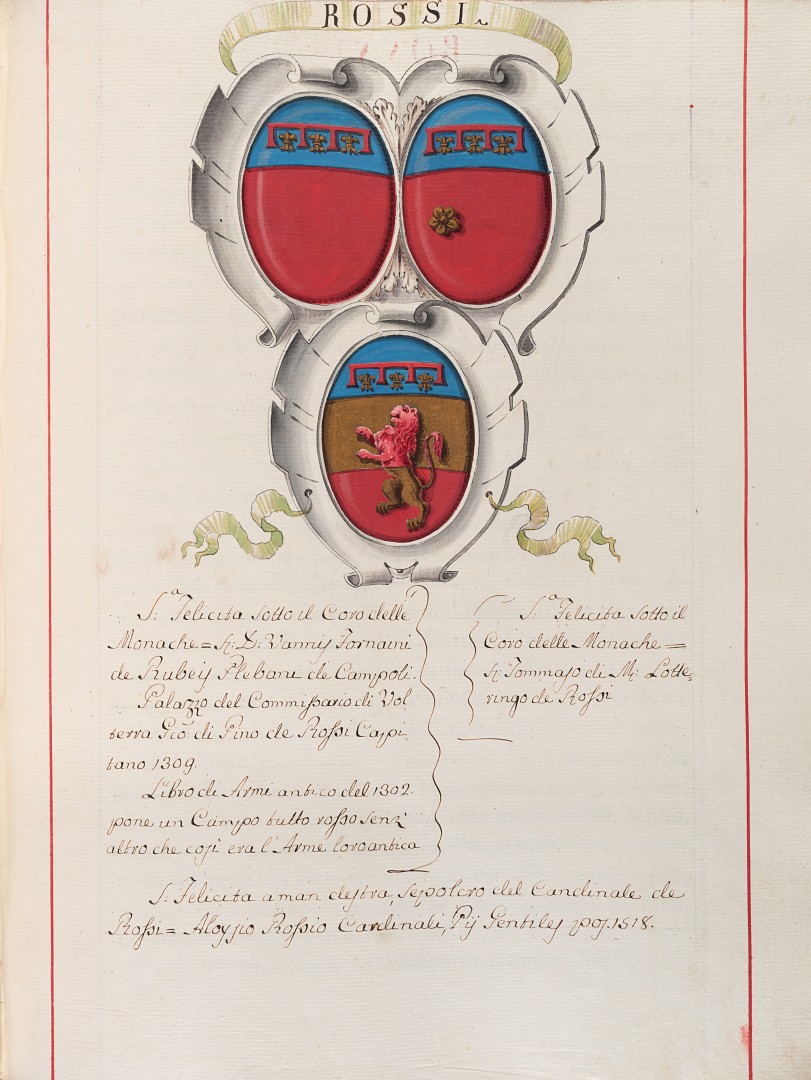 ROSSI.
S.ª Felicita sotto il Coro delle
Monache = S: D: Vannis Fornaini
de Rubeis Plebani de Campoli.
Palazzo del Commissario di Vol
terra Gio: di Pino de Rossi Capi
tano 1309.
Libro di Armi antico del 1302.
pone un Campo tutto rosso senz'
altro che così era l'Arme loro antica
S.ª Felicita sotto il
Coro delle Monache =
S: Tommaso di M: Lotte
ringo de Rossi
S: Felicita a man destra, sepolcro del Cardinale de
Rossi = Aloysio Rossio Cardinali, Pij Gentiles pos. 1518.